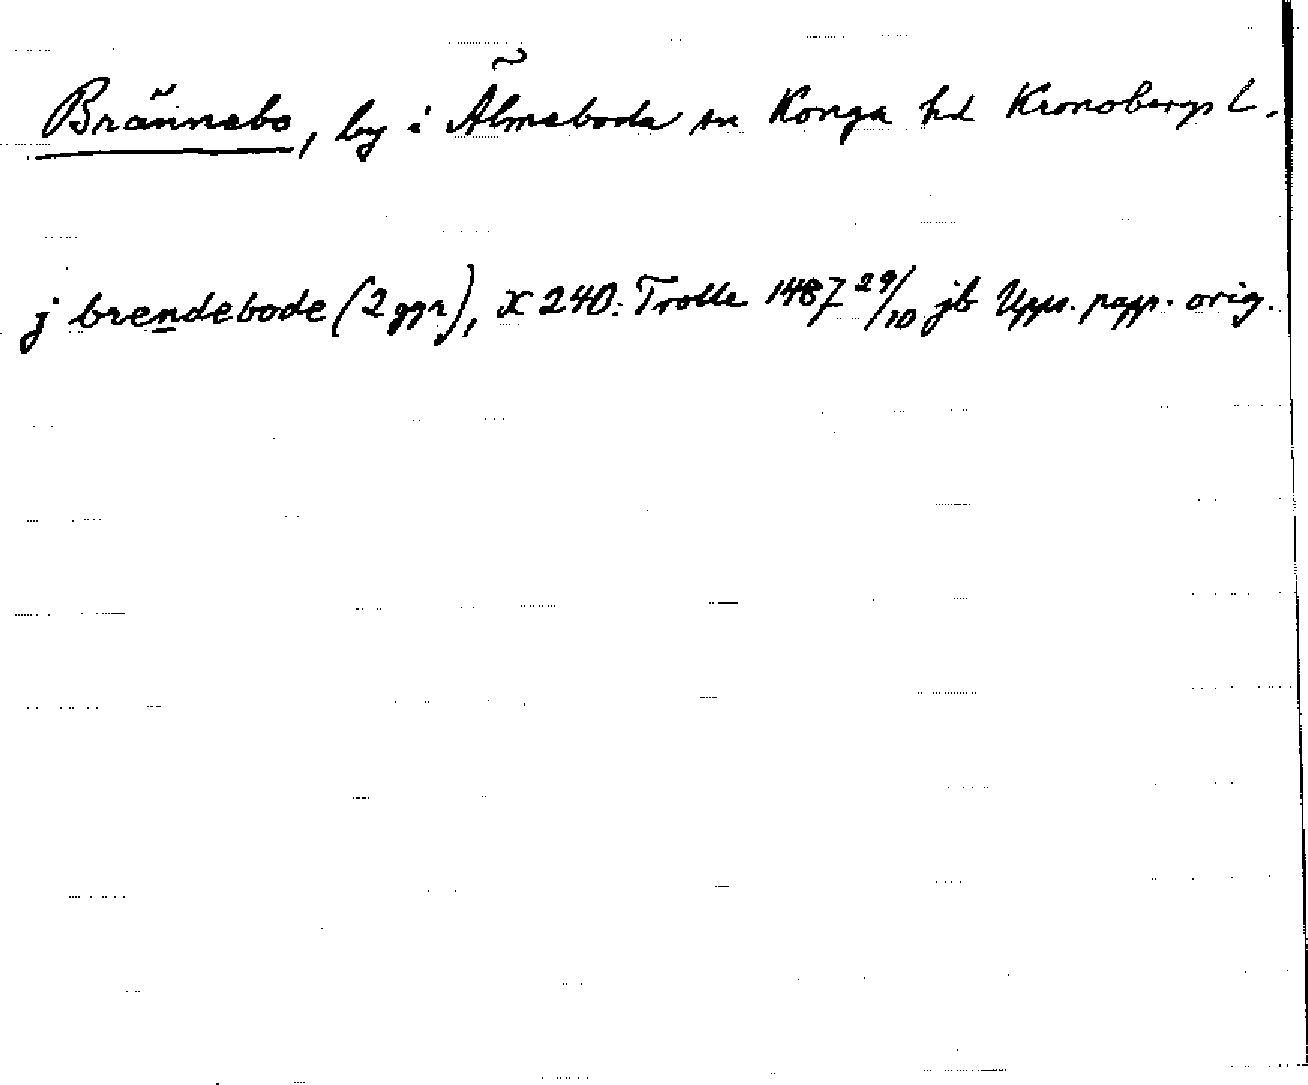 Brännebo, by i Älmeboda sn Konga hd Kronobergs l.
j brendebode (2 ggr), X 240: Trolle 1487 29/10 jb Upps. papp. orig.